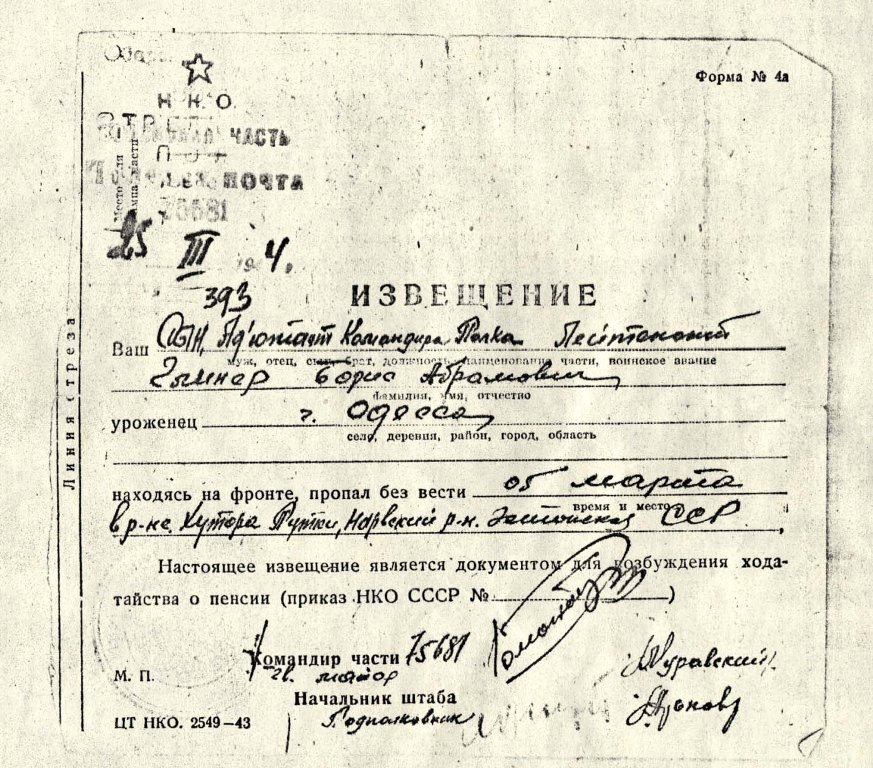 Форма № 4а
Н К О
ЧАСТЬ
ПОЧТА
75681
Место для
штампа части
25 III 1944.
393
ИЗВЕЩЕНИЕ
Ваш Сын, Ад'ютант Командира Полка Лейтенант
муж, отец, сын, брат, должность, наименование части, воинское звание
Борис Абрамович
фамилия, имя, отчество
уроженец г. Одесса
село, деревня, район, город, область
находясь на фронте, пропал без вести 05 марта
время и место
в р-не Хутора Путки, Нарвский р-н Эстонской ССР
Настоящее извещение является документом для возбуждения хода-
тайства о пенсии (приказ НКО СССР № )
Командир части 75681
гв. майор
М. П.
Начальник штаба
Подполковник
ЦТ НКО. 2549—43
Линия отреза